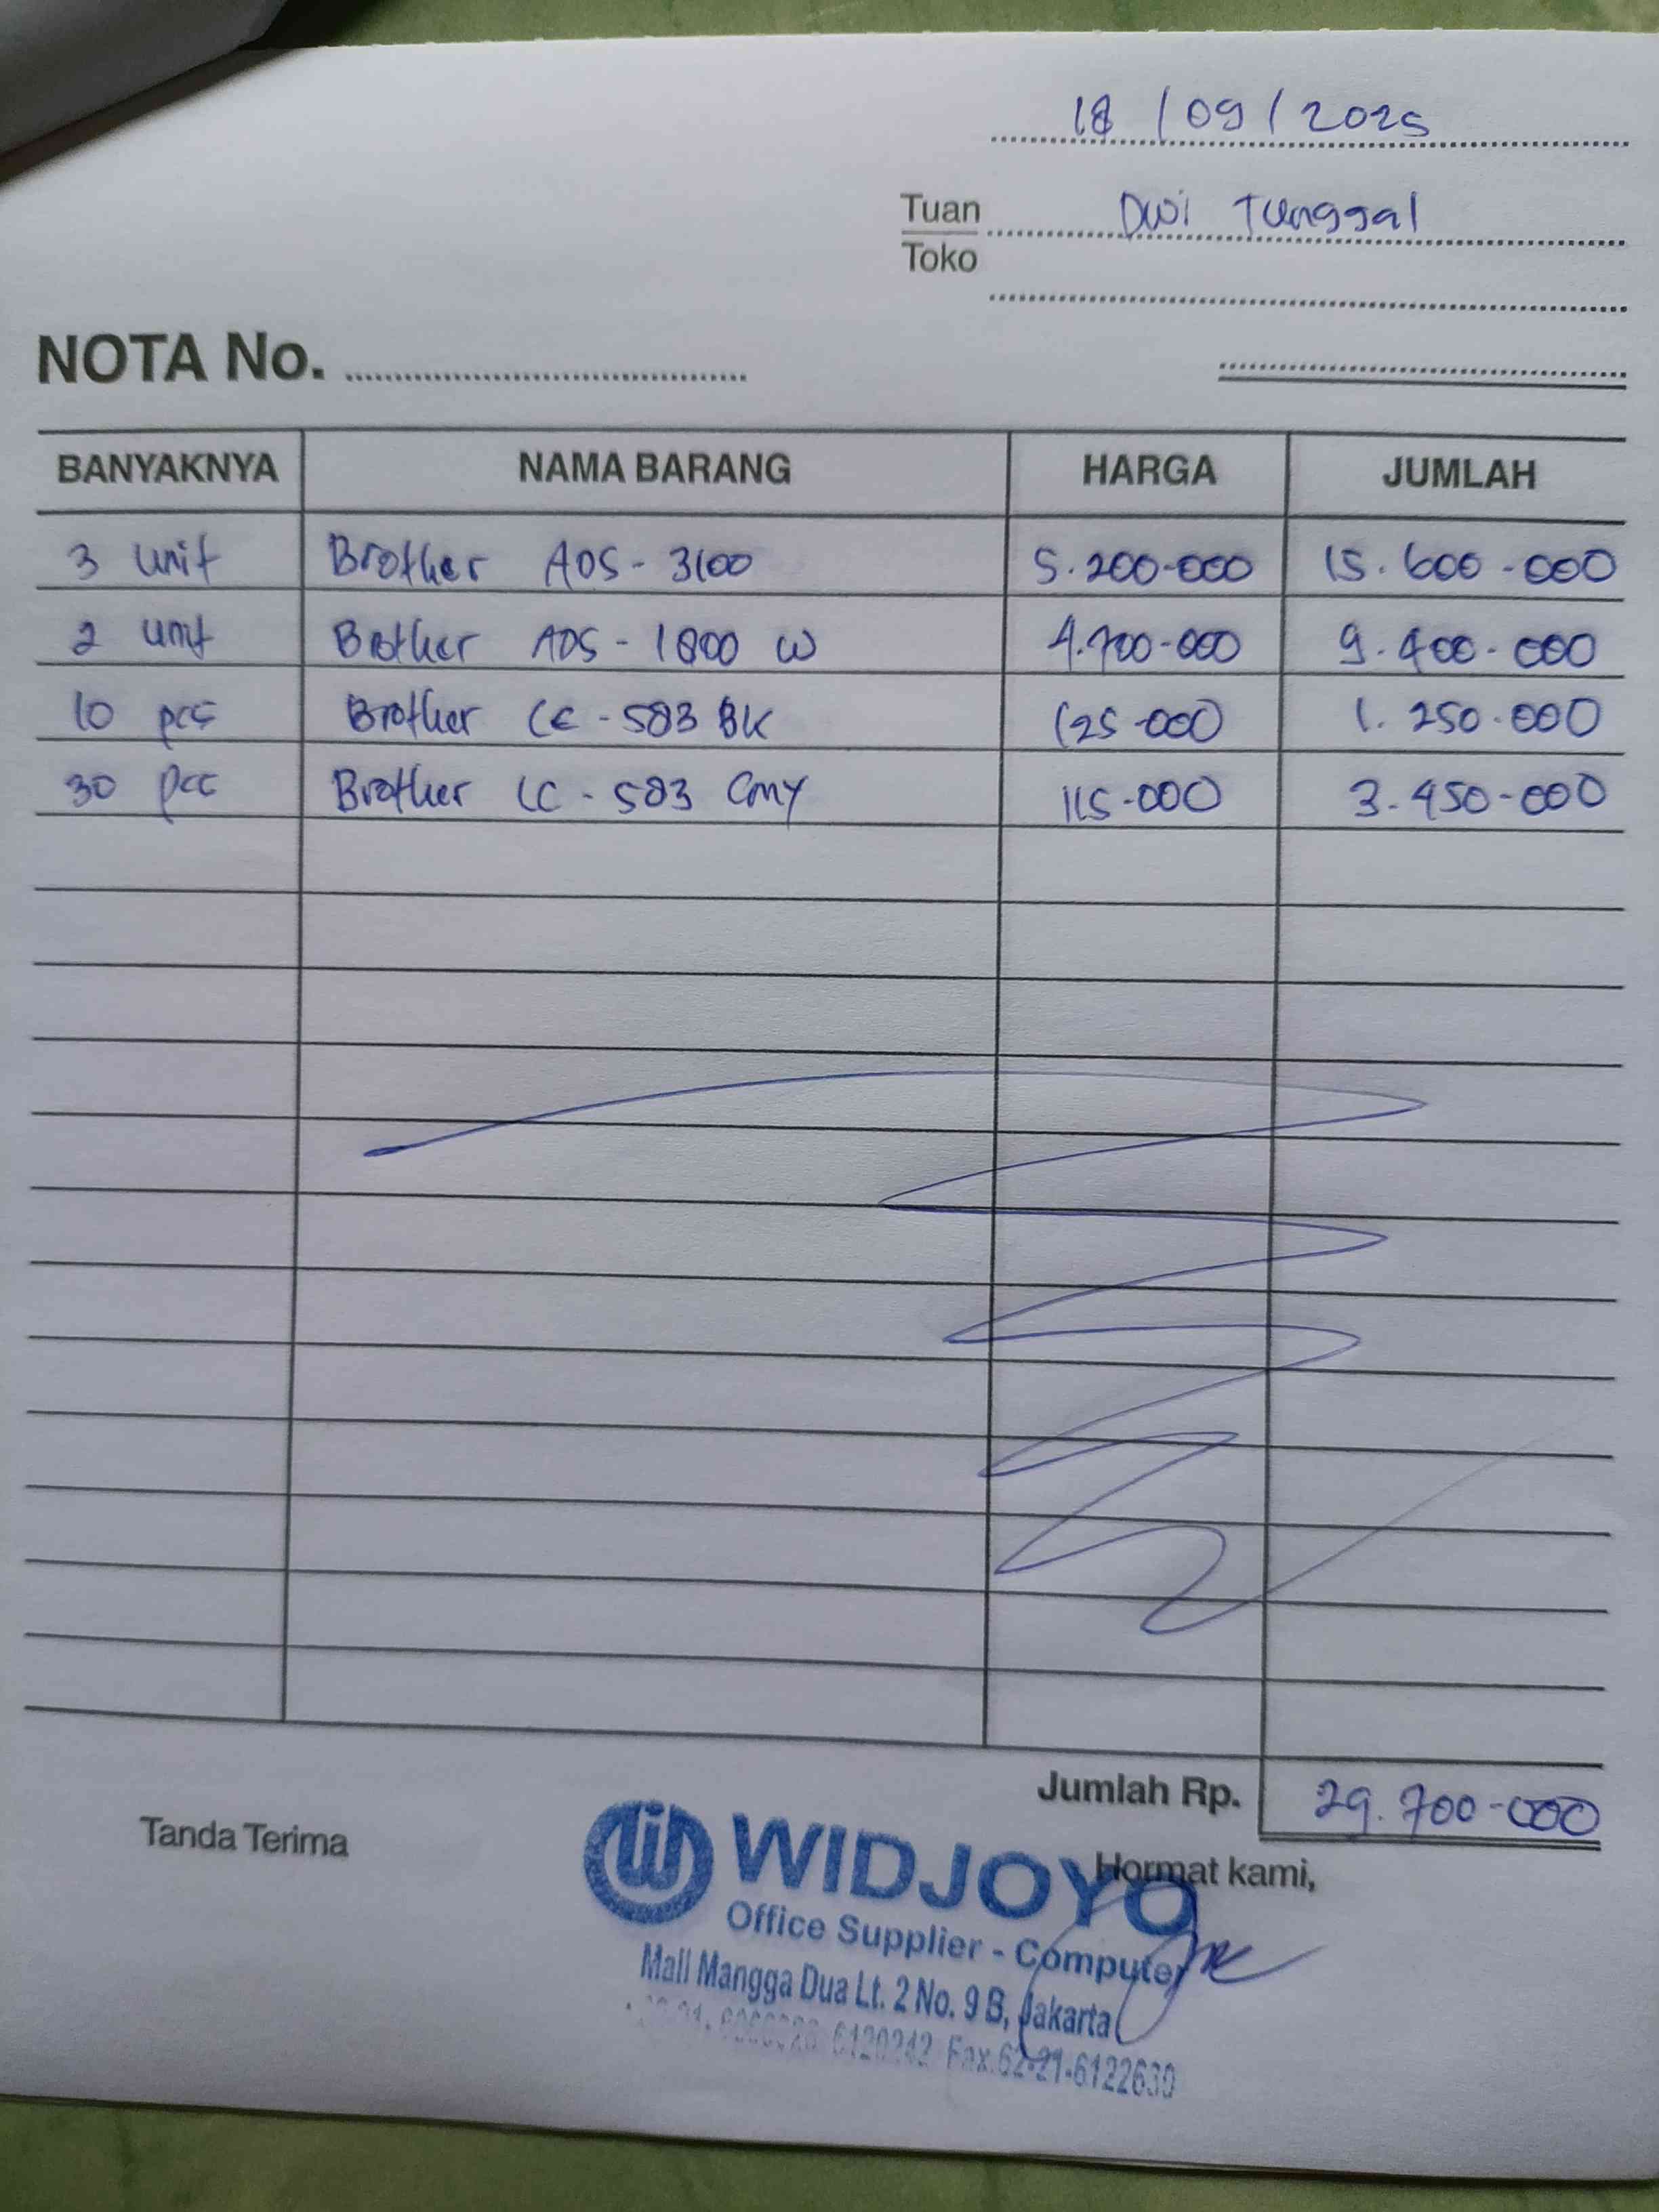 18 / 09 / 2025
Tuan Dwi Tunggal
Toko
NOTA No.
BANYAKNYA NAMA BARANG HARGA JUMLAH
3 unit Brother ADS - 3100 5.200-000 15.600-000
2 unit Brother ADS - 1800 W 4.700-000 9.400-000
10 pcs Brother LC - 583 BK 125-000 1.250-000
30 pcs Brother LC - 583 CMY 115-000 3-450-000
Jumlah Rp. 29.700-000
Tanda Terima
Hormat kami,
WIDJOYO
Office Supplier - Computer
Mall Mangga Dua Lt. 2 No. 9 B, Jakarta
6120242 Fax.62-21-6122630